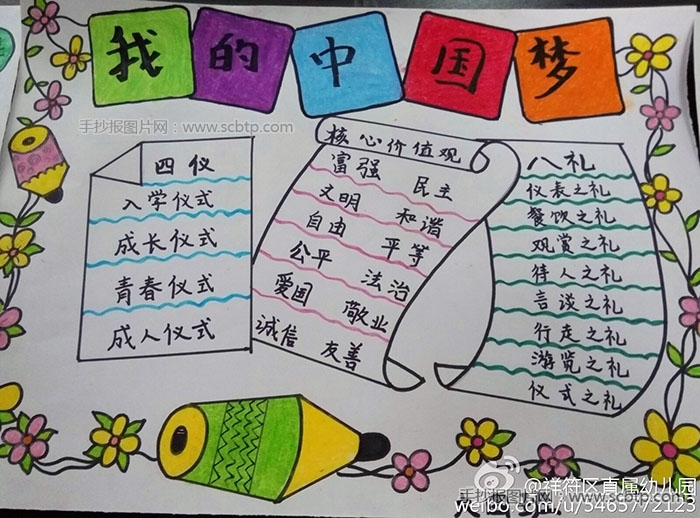 我的中国梦
手抄报图片网：www.scbtp.com
四仪
入学仪式
成长仪式
青春仪式
成人仪式
核心价值观
富强 民主
文明 和谐
自由 平等
公平 法治
爱国 敬业
诚信 友善
八礼
仪表之礼
餐饮之礼
观赏之礼
待人之礼
言谈之礼
行走之礼
游览之礼
仪式之礼
@祥符区直属幼儿园
手抄报图片网：www.scbtp.com
weibo.com/u/5465772123